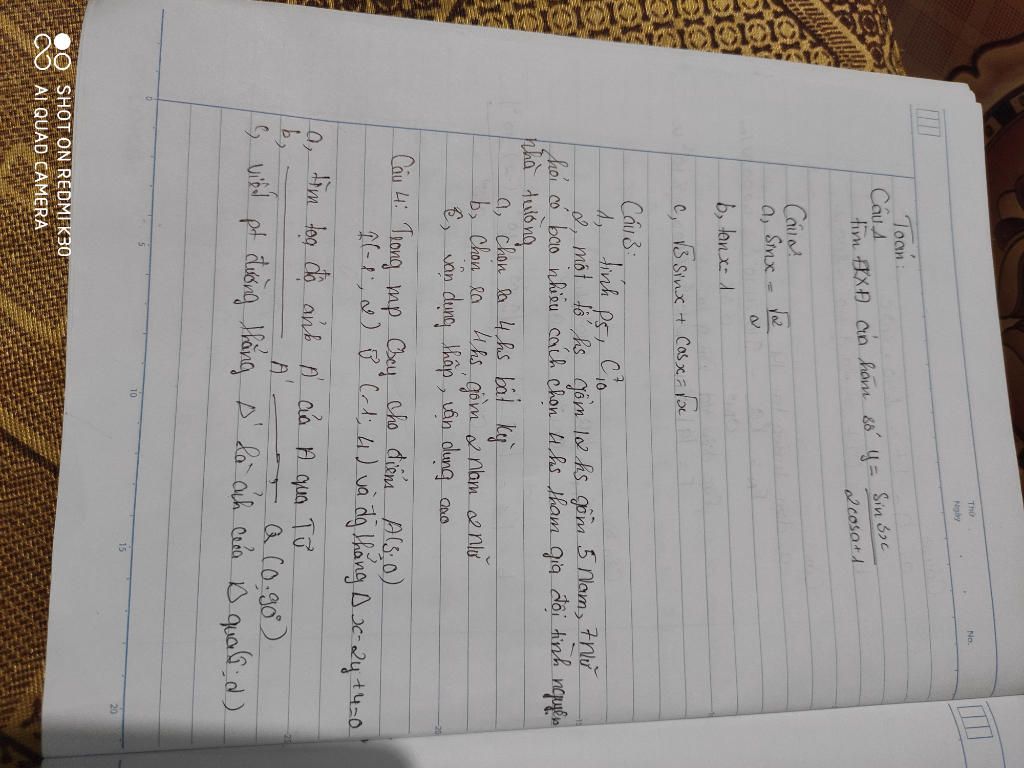 Thứ
Ngày
No.
Toán:
Câu 1
tìm ĐKXĐ của hàm số y = sin 5x / 2cosx+1
Câu 2
a, sinx = √2 / 2
b, tanx = 1
c, √3 sinx + cosx = √2
Câu 3:
1, tính P5, C⁷₁₀
2 một tổ hs gồm 12 hs gồm 5 Nam, 7 Nữ
hỏi có bao nhiêu cách chọn 4 hs tham gia đội tình nguyện
nhà trường
a, chọn ra 4 hs bất kỳ
b, chọn ra 4 hs gồm 2 Nam 2 Nữ
c, vận dụng thấp, vận dụng cao
Câu 4: Trong mp Oxy cho điểm A(3;0)
I(-1; 2) v⃗ (-1; 4) và đg thẳng Δ x-2y+4=0
a, tìm toạ độ ảnh A' của A qua Tv⃗
b, A' Q(0.90°)
c, viết pt đường thẳng Δ' là ảnh của Δ qua
0
5
10
15
20
SHOT ON REDMI K30
AI QUAD CAMERA